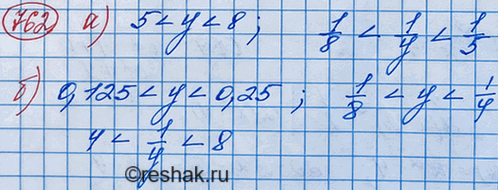 762 а) 5 < y < 8 ; 1/8 < 1/y < 1/5
б) 0,125 < y < 0,25 ; 1/8 < y < 1/4
4 < 1/y < 8
©reshak.ru